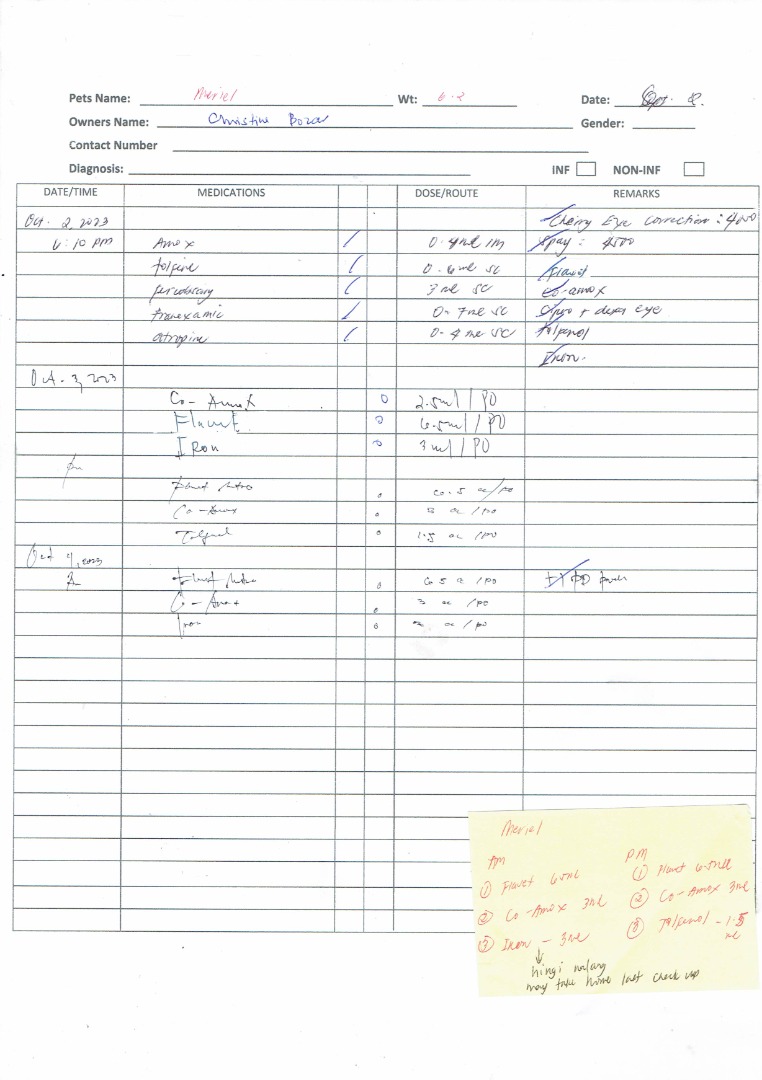 Pets Name: Meriel Wt: 6.2 Date: Sept. 8.
Owners Name: Christine Gender:
Contact Number
Diagnosis: INF NON-INF
DATE/TIME MEDICATIONS DOSE/ROUTE REMARKS
Oct. 2, 2023 Cherry Eye Correction : 4000
6:10 pm Amox / 0.4ml IM Spay : 4500
tolfine / 0.6ml SC Flavet
/ 3 ml SC Co-amox
tranexamic / 0.7ml SC + dexa eye
atropine / 0.4 ml SC Tolfenol
Iron.
Oct. 3, 2023
Co-Amox 0 2.5ml / PO
Flavet 0 6.5ml / PO
Iron 0 3 ml / PO
pm
Flavet 0 /po
Co-Amox 0 /po
Tolfenol 0 1.5 /po
Oct 4, 2023
Flavet 0 /po
Co-Amox 0 3 /po
Iron 0 /po
Meriel
AM PM
① Flavet 6.5ml ① Flavet 6.5ml
② Co-Amox 3ml ② Co-Amox 3ml
③ Iron - 3ml ③ Tolfenol - 1.5 ml
↓
hingi nalang
may take home last check up